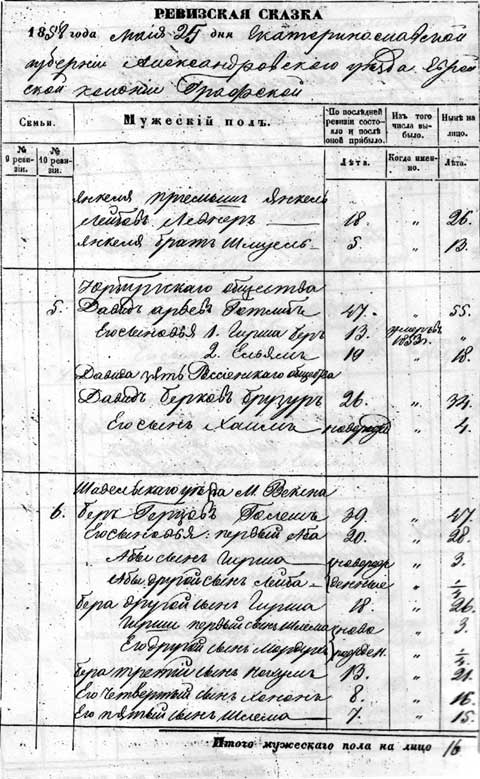 РЕВИЗСКАЯ СКАЗКА
1858 года Маія 25 дня Екатеринославской
губерніи Александровскаго уѣзда Еврей
ской колоніи Графской
Семьи.
№ 9 ревизіи.
№ 10 ревизіи.
Мужескій полъ.
По послѣдней ревизіи состояло и послѣ оной прибыло.
Изъ того числа выбыло.
Нынѣ на лицо.
Лѣта.
Когда именно.
Лѣта.
Янкеля Янкель
Лейбовъ 18. „ 26.
Янкеля братъ Шмуель 5. „ 13.
общества
5. Давидъ Арьевъ Готлибъ 47. „ 55.
Его сыновья 1. Гирша Беръ 13. умеръ въ 1853 г. „
2. 10 „ 18.
Давида зять общества
Давидъ Берковъ 26. „ 34.
Его сынъ Хаимъ новорожд „ 4.
Шавельскаго уѣзда М. Векшна
6. Берк Герцовъ 39. „ 47.
Его сыновья: первый Аба 20. „ 28.
Абы сынъ Гирша новорож „ 3.
Абы другой сынъ Лейба денные „ 1/4
Бера другой сынъ Гирша 18. „ 26.
Гирши первый сынъ Шлема ново „ 3.
Его другой сынъ рожден. „ 1/4.
Бера третій сынъ Нохумъ 13. „ 21.
Его четвертый сынъ Хононъ 8. „ 16.
Его пятый сынъ Шлема 7. „ 15.
Итого мужескаго пола на лицо 16